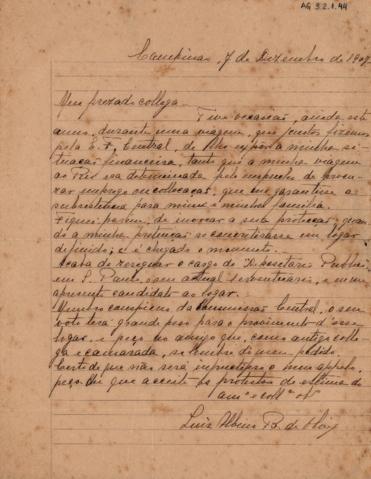 AG 3.2.1.44
Campinas, 7 de Dezembro de 190
Meu prezado collega.
Tive occasião, ainda este
anno, durante uma viagem, que juntos fizemos
pela E. F. Central, de lhe expôr a minha si-
tuação financeira, tanto que a minha viagem
ao Rio era determinada pelo de procu-
rar emprego ou collocação, que me garantisse a
subsistencia para mim e minha familia.
Fiquei porem, de invocar a sua protecção, quan-
do a minha pretenção se concretisasse em lugar
definido; e é chegado o momento.
Acaba de vagar o cargo de Depositario Publico,
em S. Paulo, o actual e me
apresento candidato ao lugar.
Membro da Commissão Central, o seu
voto terá grande peso para o provimento d'esse
lugar, e peço ao amigo que, como antigo colle-
ga e camarada, se lembre do meu pedido.
Certo de que não será o meu appello,
peço-lhe que acceite os protestos de estima do
am.º e coll.ª
Luiz Albino B. de